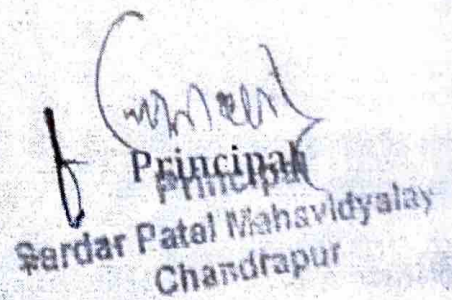 Principal
Principal
Sardar Patel Mahavidyalay
Chandrapur